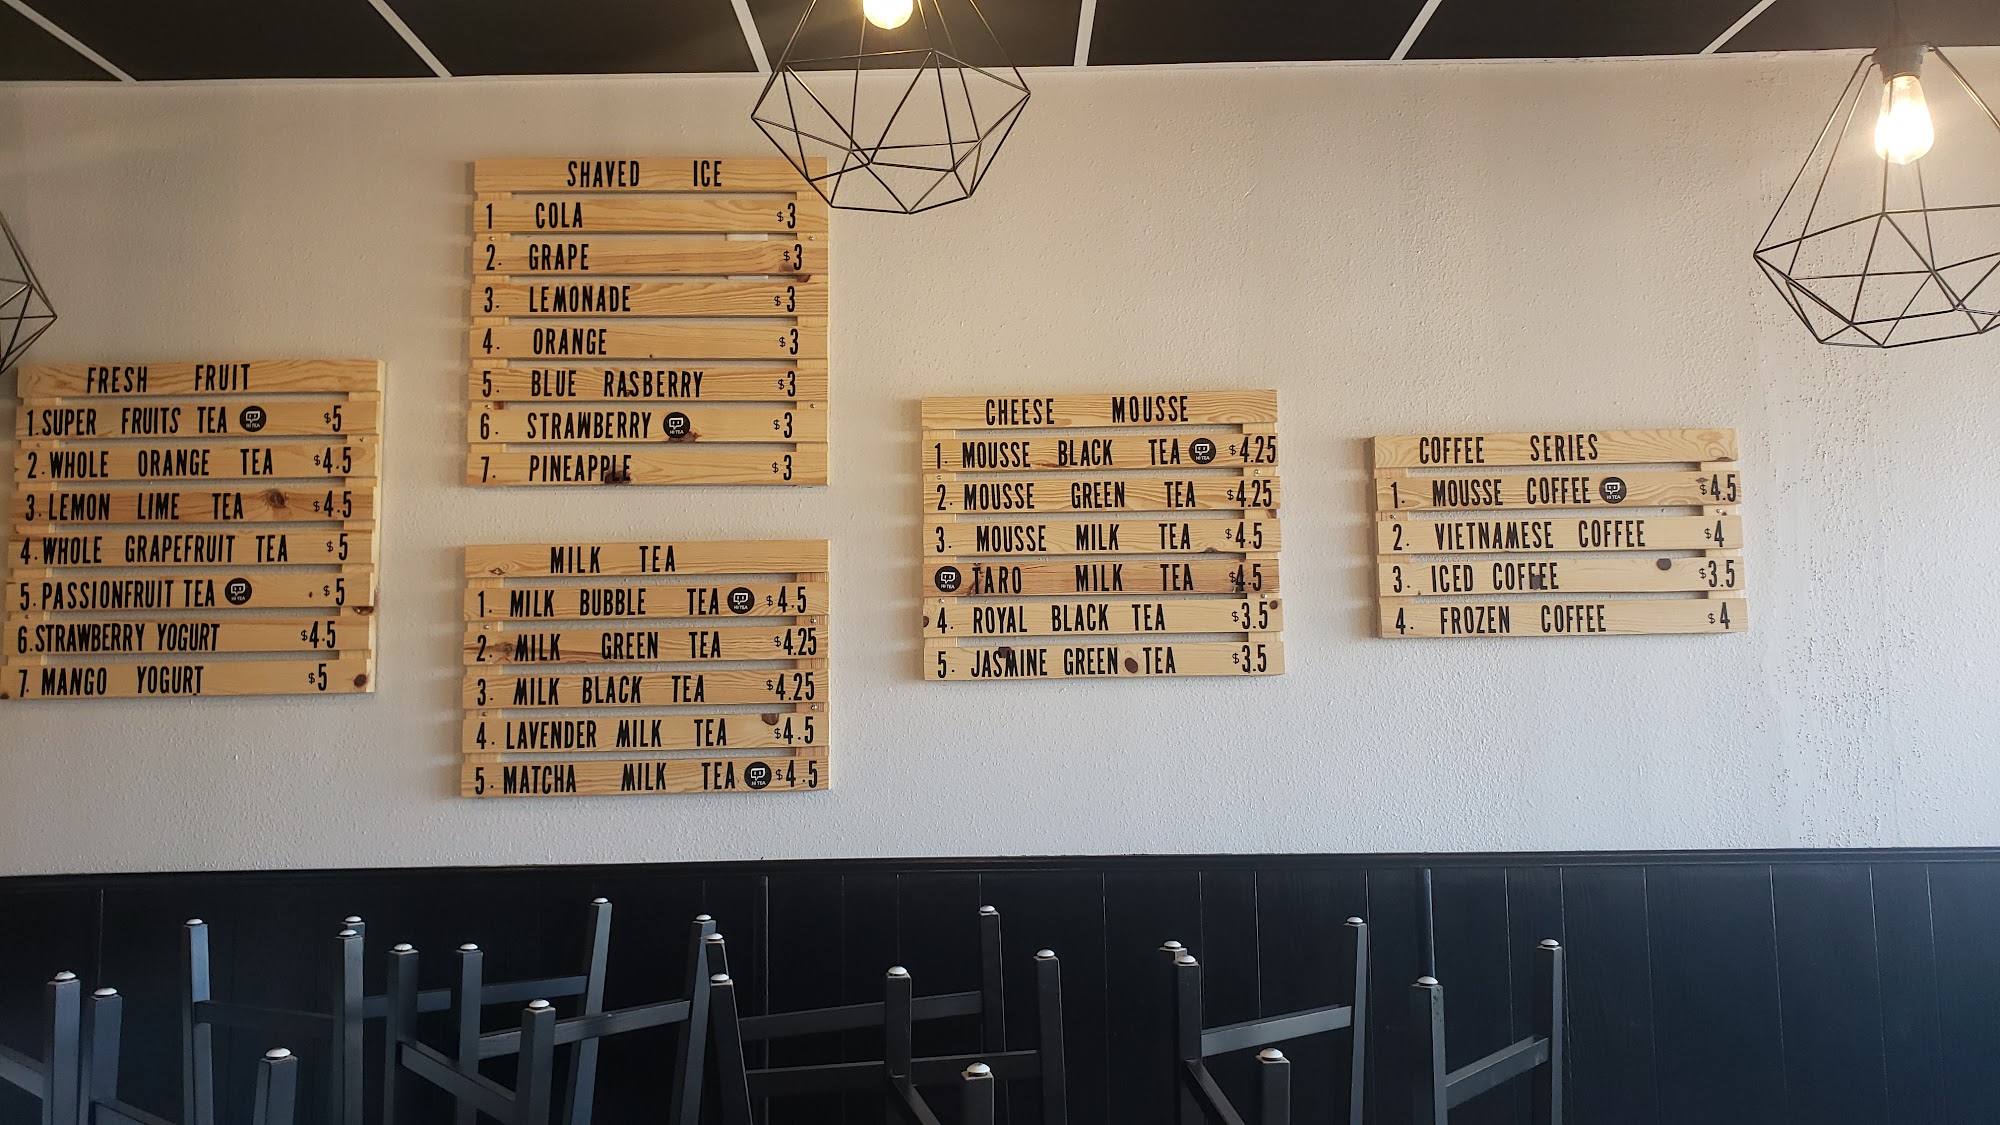 FRESH FRUIT
1. SUPER FRUITS TEA HI TEA $5
2. WHOLE ORANGE TEA $4.5
3. LEMON LIME TEA $4.5
4. WHOLE GRAPEFRUIT TEA $5
5. PASSIONFRUIT TEA HI TEA $5
6. STRAWBERRY YOGURT $4.5
7. MANGO YOGURT $5
SHAVED ICE
1 COLA $3
2. GRAPE $3
3. LEMONADE $3
4. ORANGE $3
5. BLUE RASBERRY $3
6. STRAWBERRY HI TEA $3
7. PINEAPPLE $3
MILK TEA
1. MILK BUBBLE TEA HI TEA $4.5
2. MILK GREEN TEA $4.25
3. MILK BLACK TEA $4.25
4. LAVENDER MILK TEA $4.5
5. MATCHA MILK TEA HI TEA $4.5
CHEESE MOUSSE
1. MOUSSE BLACK TEA HI TEA $4.25
2. MOUSSE GREEN TEA $4.25
3. MOUSSE MILK TEA $4.5
HI TEA TARO MILK TEA $4.5
4. ROYAL BLACK TEA $3.5
5. JASMINE GREEN TEA $3.5
COFFEE SERIES
1. MOUSSE COFFEE HI TEA $4.5
2. VIETNAMESE COFFEE $4
3. ICED COFFEE $3.5
4. FROZEN COFFEE $4